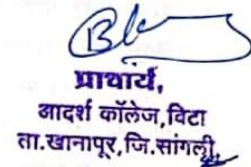 प्राचार्य,
आदर्श कॉलेज,विटा
ता.खानापूर,जि.सांगली.